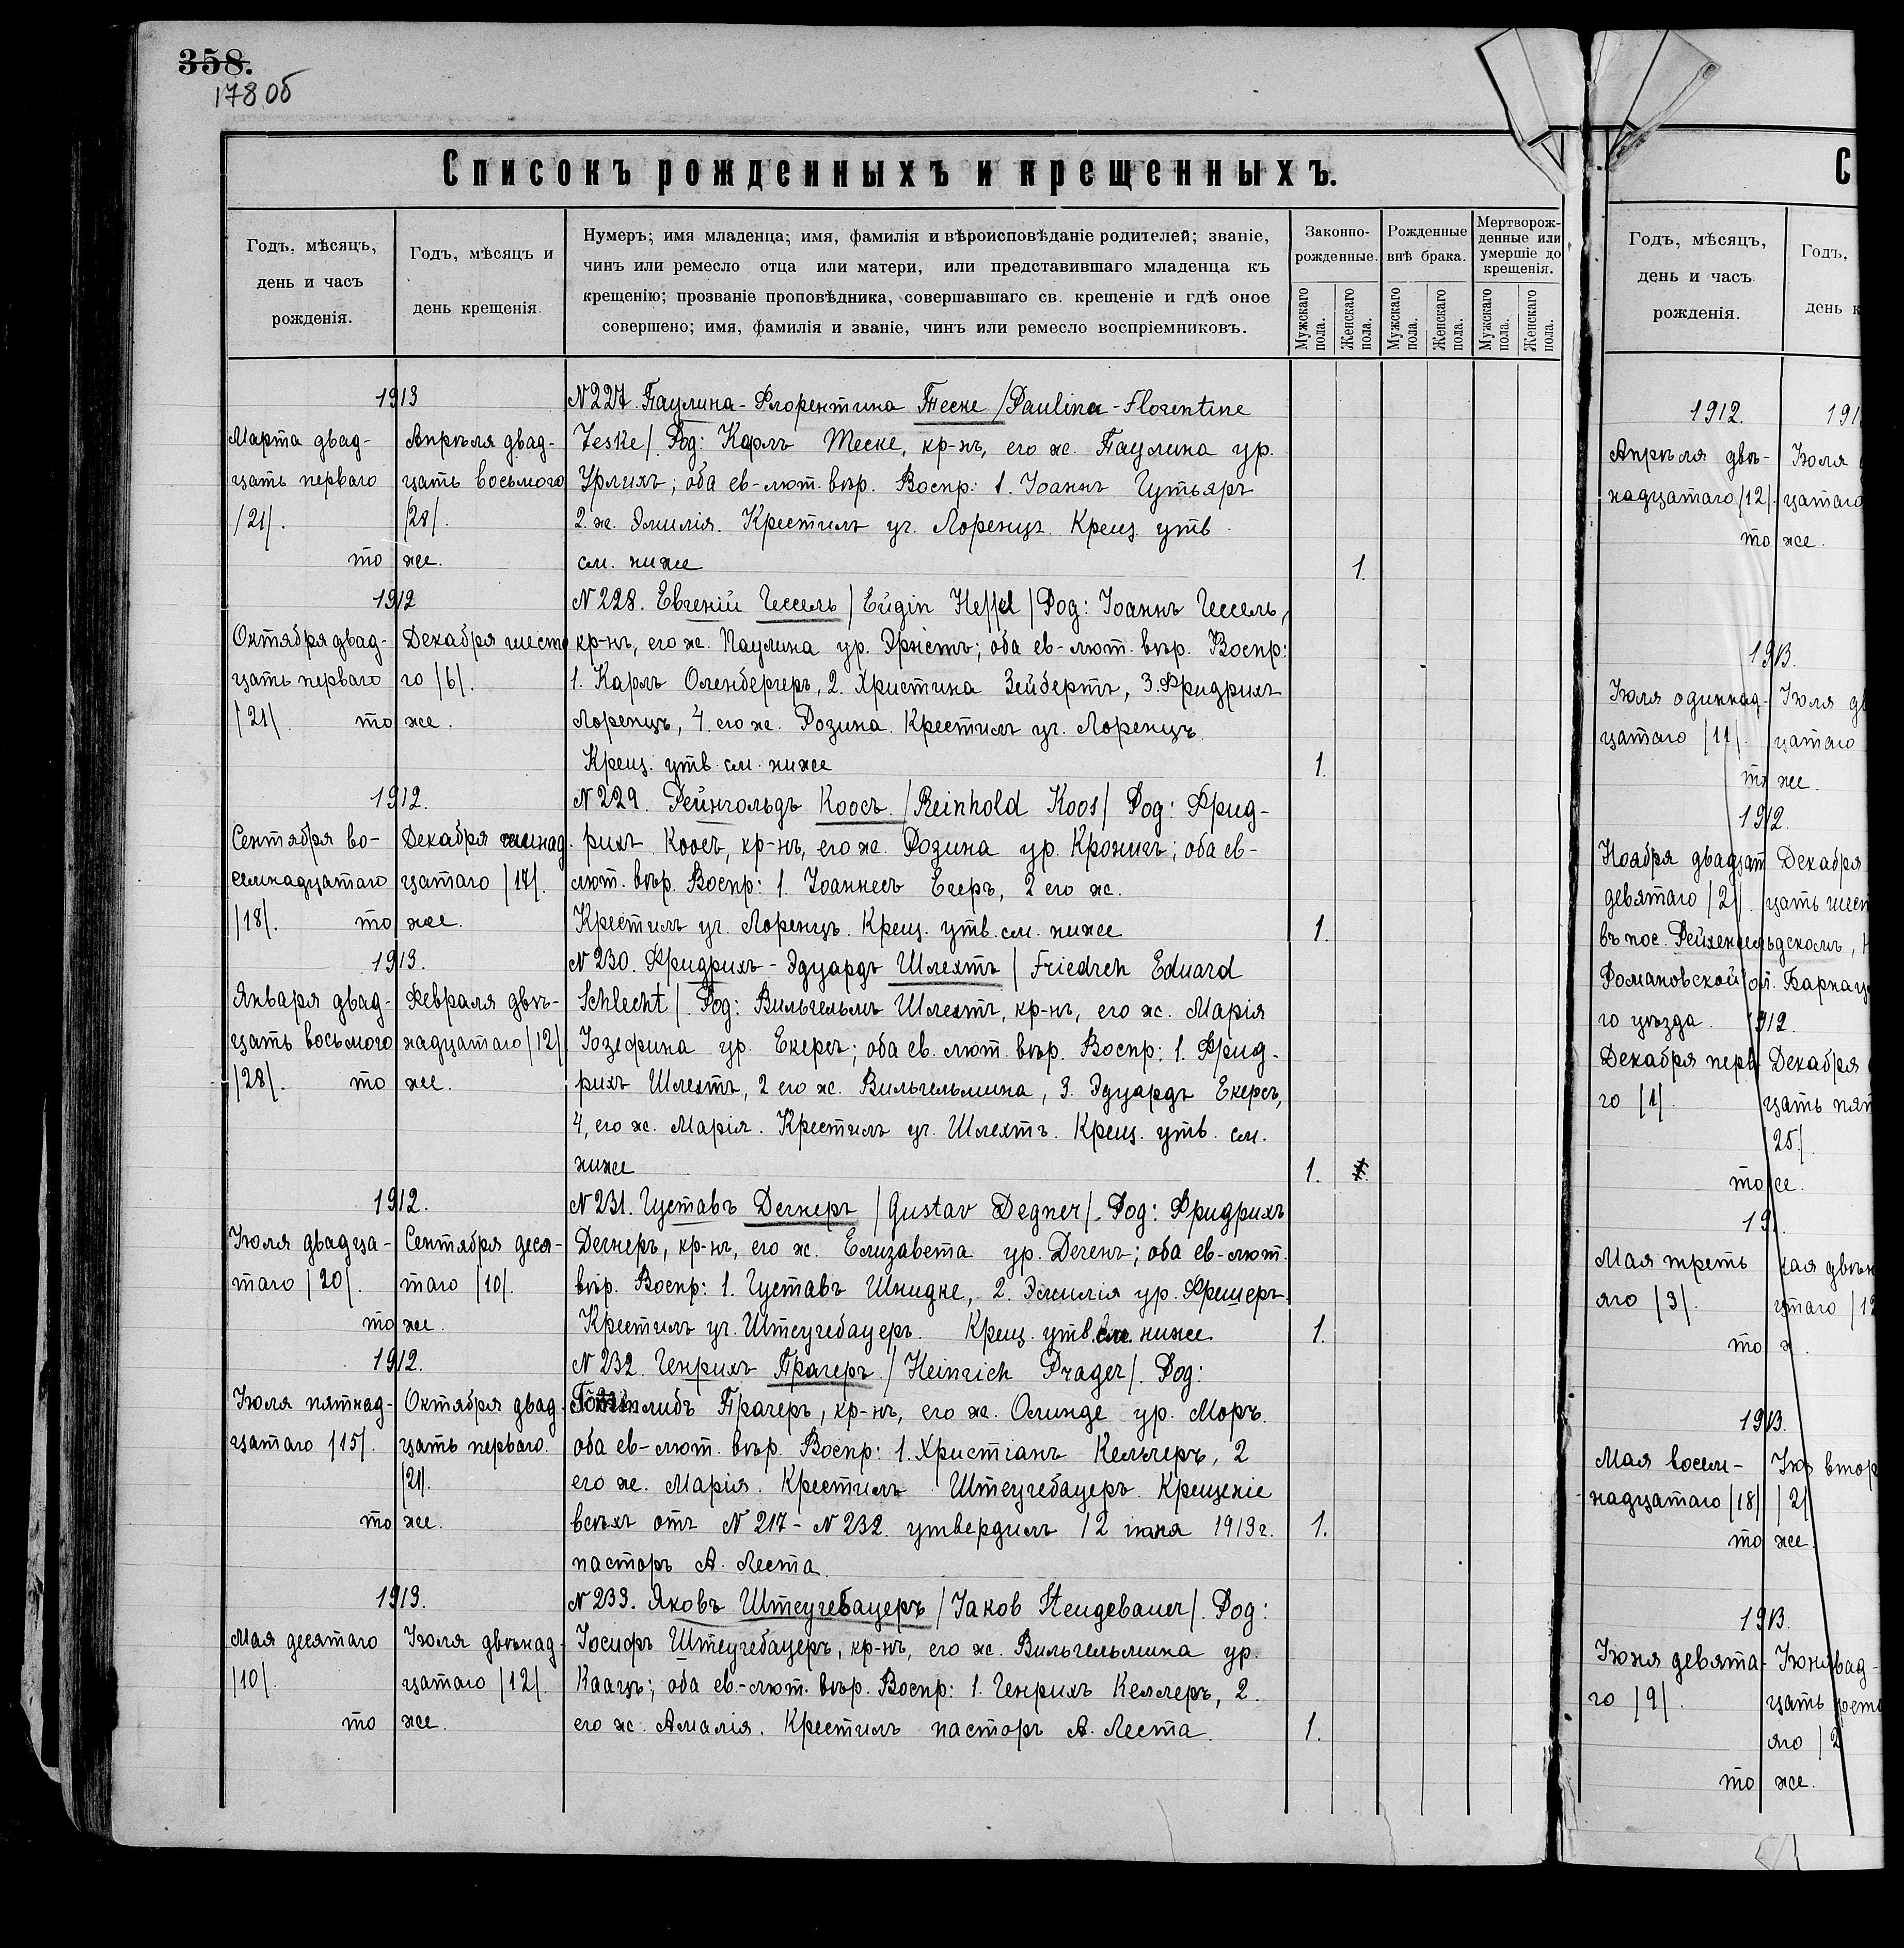 358.
178 об
Списокъ рожденныхъ и крещенныхъ.
Годъ, мѣсяцъ,
день и часъ
рожденія.
Годъ, мѣсяцъ и
день крещенія
Нумеръ; имя младенца; имя, фамилія и вѣроисповѣданіе родителей; званіе,
чинъ или ремесло отца или матери, или представившаго младенца къ
крещенію; прозваніе проповѣдника, совершавшаго св. крещеніе и гдѣ оное
совершено; имя, фамилія и званіе, чинъ или ремесло воспріемниковъ.
Законно-
рожденные.
Рожденные
внѣ брака.
Мертворож-
денные или
умершіе до
крещенія.
Мужскаго пола.
Женскаго пола.
Мужскаго пола.
Женскаго пола.
Мужскаго пола.
Женскаго пола.
1913
Марта двад-
цать перваго
/21/.
то же.
Апрѣля двад-
цать восьмого
/28/.
N 227. Паулина-Флорентина Теске /Paulina-Florentine
Teske/. Род: Карлъ Теске, кр-нъ, его ж. Паулина ур.
Урлихъ; оба ев-лют. вѣр. Воспр: 1. Іоаннъ Гутьяръ
2. ж. Эмилія. Крестилъ уч. Лоренцъ. Крещ. утв.
см. ниже
1.
1912
Октября двад-
цать перваго
/21/. то же.
Декабря шесто
го /6/.
N 228. Евгеній Гессель /Eügin Hessel/ Род: Іоаннъ Гессель,
кр-нъ, его ж. Паулина ур. Эрнстъ; оба ев-лют. вѣр. Воспр:
1. Карлъ Оленбергеръ, 2. Христина Зейбертъ, 3. Фридрихъ
Лоренцъ, 4. его ж. Розина. Крестилъ уч. Лоренцъ.
Крещ. утв. см. ниже
1.
1912.
Сентября во-
семнадцатаго
/18/. то же.
Декабря семнад-
цатаго /17/.
N 229. Рейнгольдъ Коосъ /Reinhold Koos/ Род: Фрид-
рихъ Коосъ, кр-нъ, его ж. Розина ур. Кронигъ; оба ев-
лют. вѣр. Воспр: 1. Іоаннесъ Егеръ, 2 его ж.
Крестилъ уч. Лоренцъ. Крещ. утв. см. ниже
1.
1913.
Января двад-
цать восьмого
/28/. то же.
Февраля двѣ-
надцатаго /12/
N 230. Фридрихъ-Эдуардъ Шлехтъ /Friedrch Eduard
Schlecht/. Род: Вильгельмъ Шлехтъ, кр-нъ, его ж. Марія
Іозефина ур. Екерсъ; оба ев. лют. вѣр. Воспр: 1. Фрид-
рихъ Шлехтъ, 2 его ж. Вильгельмина, 3. Эдуардъ Екерсъ,
4, его ж. Марія. Крестилъ уч. Шлехтъ. Крещ. утв. см.
ниже
1.
1912.
Іюля двадца-
таго /20/.
то же.
Сентября деся-
таго /10/.
N 231. Густавъ Дегнеръ /Gustav Degner/. Род: Фридрихъ
Дегнеръ, кр-нъ, его ж. Елизавета ур. Дегенъ; оба ев-лют.
вѣр. Воспр: 1. Густавъ Шнидке, 2. Эмилія ур. Фрешеръ.
Крестилъ уч. Штеугебауеръ. Крещ. утв. см. ниже
1.
1912.
Іюля пятнад-
цатаго /15/.
то же.
Октября двад-
цать перваго.
/21/.
N 232. Генрихъ Прагеръ /Heinrich Prager/. Род:
Готтлибъ Прагеръ, кр-нъ, его ж. Олинде ур. Моръ.
оба ев-лют. вѣр. Воспр: 1. Христіанъ Кельгеръ, 2
его ж. Марія. Крестилъ Штеугебауеръ. Крещеніе
всѣхъ отъ N 217-N 232 утвердилъ 12 іюня 1913 г.
пасторъ А. Леста.
1.
1913.
Мая десятаго
/10/.
то же.
Іюля двѣнад-
цатаго /12/.
N 233. Яковъ Штеугебауеръ /Jakob Steugebauer/. Род:
Іосифъ Штеугебауеръ, кр-нъ, его ж. Вильгельмина ур.
Каацъ; оба ев.-лют. вѣр. Воспр: 1. Генрихъ Келлеръ, 2.
его ж. Амалія. Крестилъ пасторъ А. Леста.
1.
С
Годъ, мѣсяцъ,
день и часъ
рожденія.
Годъ,
день к
1912.
191
Апрѣля двѣ-
надцатаго /12/.
то же.
Іюля
цатаго
1913.
Іюля одиннад-
цатаго /11/.
то же.
Іюля дв
цатаго
1912.
Ноября двадцат
девятаго /2/.
Декабря
цать шест
въ пос. Рейхенфельдскомъ,
Романовской Барнау
го уѣзда. 1912.
Декабря перв
го /1/.
Декабря
цать пят
/25/.
то же.
19
Мая треть
яго /3/.
то
мая двѣн
цтаго /12
1913.
Мая восем-
надцатаго /18/
то же.
втор
/2/
1913.
Іюня девята-
го /9/.
то же.
Іюня вад-
цать
яго /2